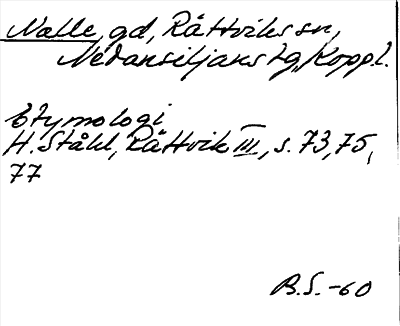 Nalle, gd, Rättviks sn,
Nedansiljans tg, Koppl.
Etymologi
H. Ståhl, Rättvik III, s. 73, 75,
77
B.S.-60